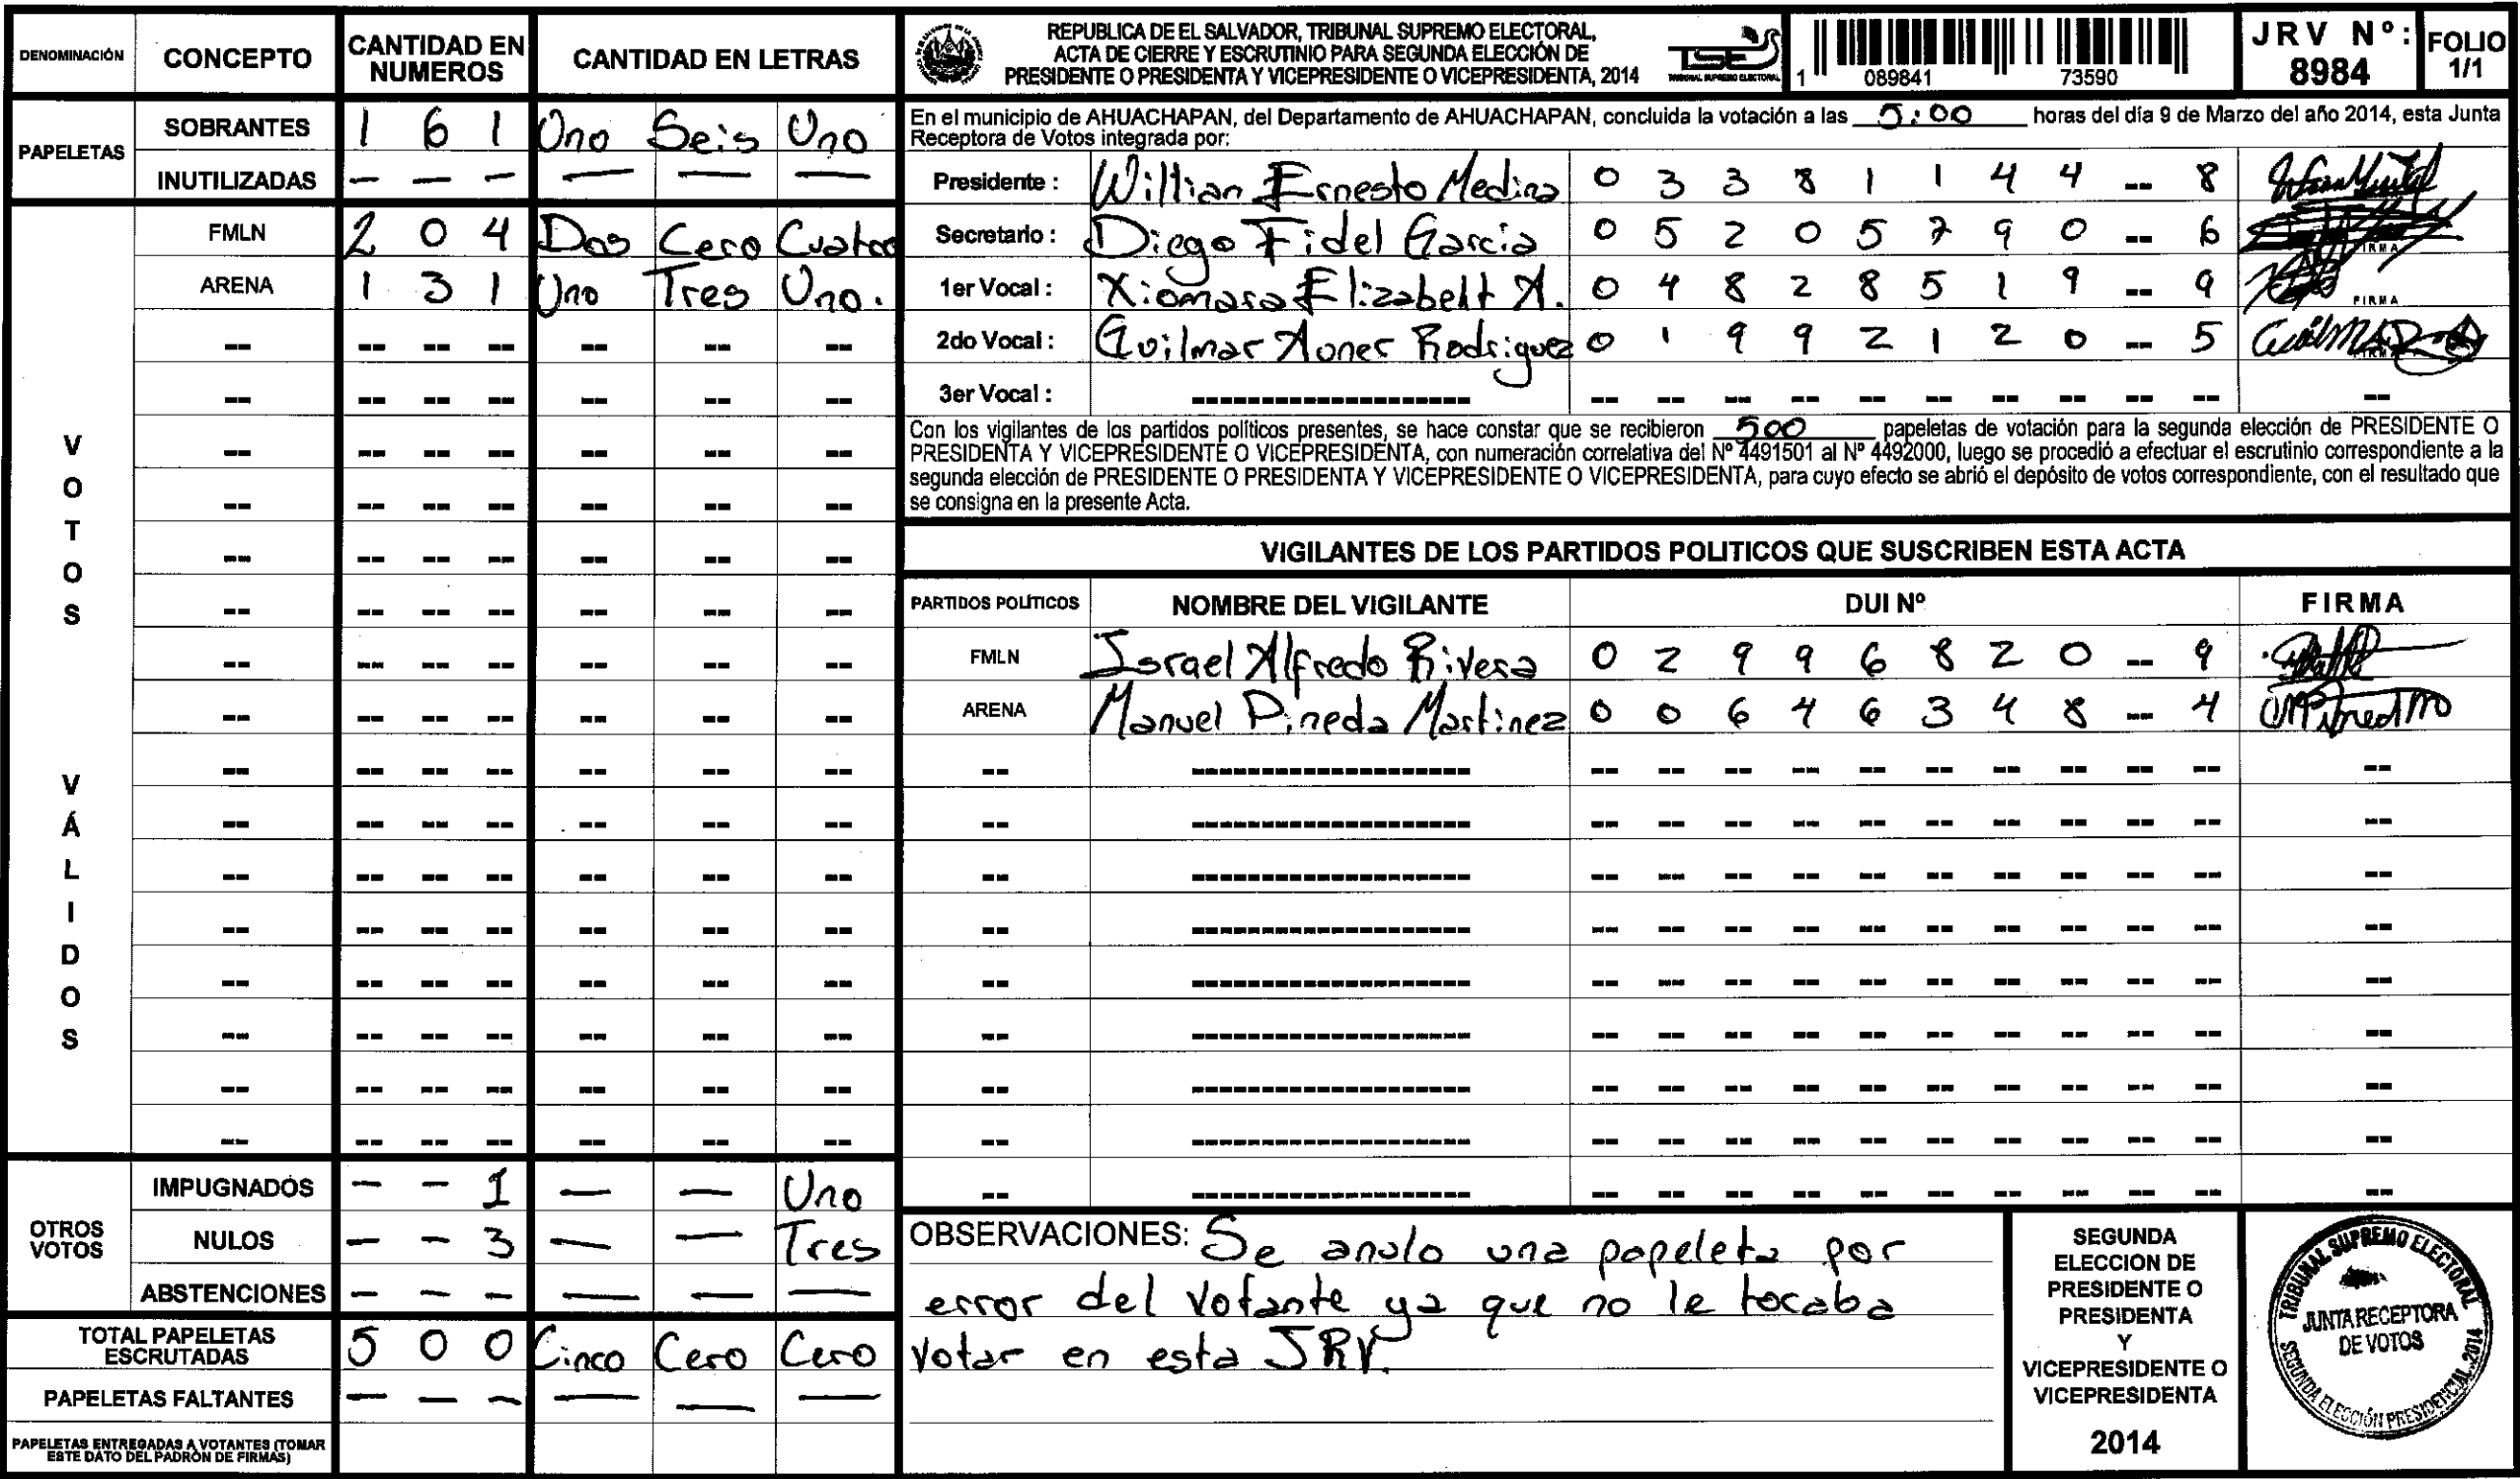 DENOMINACIÓN CONCEPTO CANTIDAD EN NUMEROS CANTIDAD EN LETRAS
PAPELETAS
SOBRANTES 1 6 1 Uno Seis Uno
INUTILIZADAS — — — — — —
VOTOS VÁLIDOS
FMLN 2 0 4 Dos Cero Cuatro
ARENA 1 3 1 Uno Tres Uno.
OTROS VOTOS
IMPUGNADOS — — 1 — — Uno
NULOS — — 3 — — Tres
ABSTENCIONES — — — — — —
TOTAL PAPELETAS ESCRUTADAS 5 0 0 Cinco Cero Cero
PAPELETAS FALTANTES — — — — — —
PAPELETAS ENTREGADAS A VOTANTES (TOMAR
ESTE DATO DEL PADRÓN DE FIRMAS)
REPUBLICA DE EL SALVADOR, TRIBUNAL SUPREMO ELECTORAL,
ACTA DE CIERRE Y ESCRUTINIO PARA SEGUNDA ELECCIÓN DE
PRESIDENTE O PRESIDENTA Y VICEPRESIDENTE O VICEPRESIDENTA, 2014
TSE
TRIBUNAL SUPREMO ELECTORAL
1 089841 73590
JRV Nº: 8984
FOLIO 1/1
En el municipio de AHUACHAPAN, del Departamento de AHUACHAPAN, concluida la votación a las 5:00 horas del día 9 de Marzo del año 2014, esta Junta
Receptora de Votos integrada por:
Presidente : Willian Ernesto Medina 0 3 3 8 1 1 4 4 -- 8
Secretario : Diego Fidel Garcia 0 5 2 0 5 7 9 0 -- 6
1er Vocal : Xiomara Elizabelt A. 0 4 8 2 8 5 1 9 -- 9 FIRMA
2do Vocal : Guilmar Aoner Rodriguez 0 1 9 9 2 1 2 0 -- 5
3er Vocal : --
Con los vigilantes de los partidos políticos presentes, se hace constar que se recibieron 500 papeletas de votación para la segunda elección de PRESIDENTE O
PRESIDENTA Y VICEPRESIDENTE O VICEPRESIDENTA, con numeración correlativa del Nº 4491501 al Nº 4492000, luego se procedió a efectuar el escrutinio correspondiente a la
segunda elección de PRESIDENTE O PRESIDENTA Y VICEPRESIDENTE O VICEPRESIDENTA, para cuyo efecto se abrió el depósito de votos correspondiente, con el resultado que
se consigna en la presente Acta.
VIGILANTES DE LOS PARTIDOS POLITICOS QUE SUSCRIBEN ESTA ACTA
PARTIDOS POLÍTICOS NOMBRE DEL VIGILANTE DUI Nº FIRMA
FMLN Israel Alfredo Rivera 0 2 9 9 6 8 2 0 -- 9
ARENA Manuel Pineda Martinez 0 0 6 4 6 3 4 8 -- 4
OBSERVACIONES: Se anulo una papeleta por
error del votante ya que no le tocaba
votar en esta JRV.
SEGUNDA
ELECCION DE
PRESIDENTE O
PRESIDENTA
Y
VICEPRESIDENTE O
VICEPRESIDENTA
2014
TRIBUNAL SUPREMO ELECTORAL
JUNTA RECEPTORA
DE VOTOS
SEGUNDA ELECCIÓN PRESIDENCIAL 2014